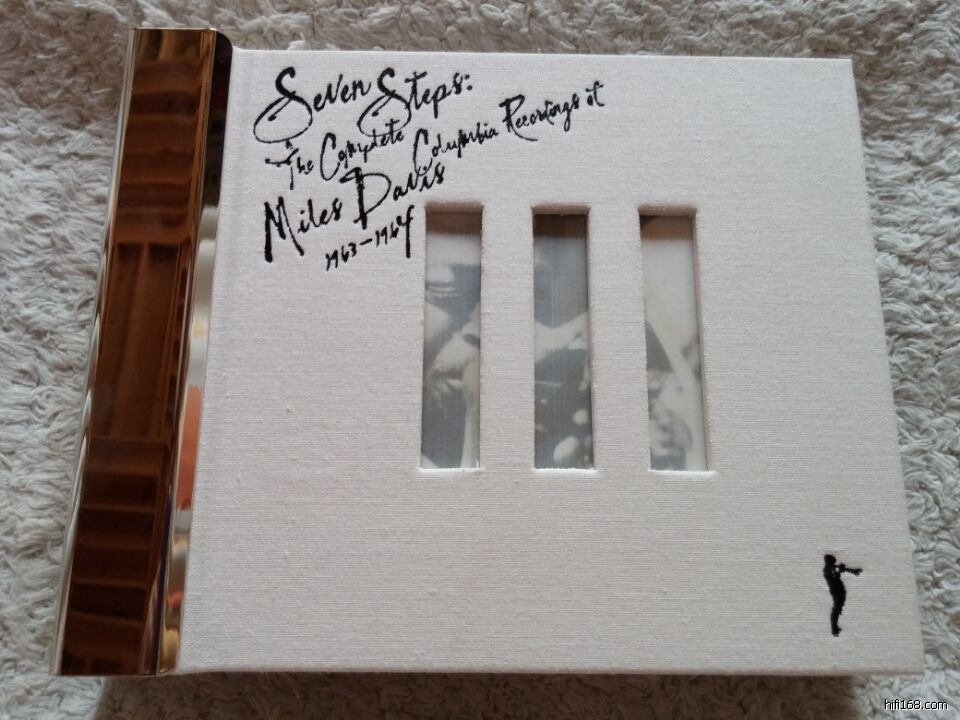 Seven Steps:
The Complete Columbia Recordings of
Miles Davis
1963-1964
hifi168.com